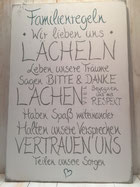 Familienregeln
Wir lieben uns
LÄCHELN
Leben unsere Träume
Sagen BITTE & DANKE
LACHEN
RESPEKT
Haben Spaß miteinander
Halten unsere Versprechen
VERTRAUEN UNS
Teilen unsere Sorgen